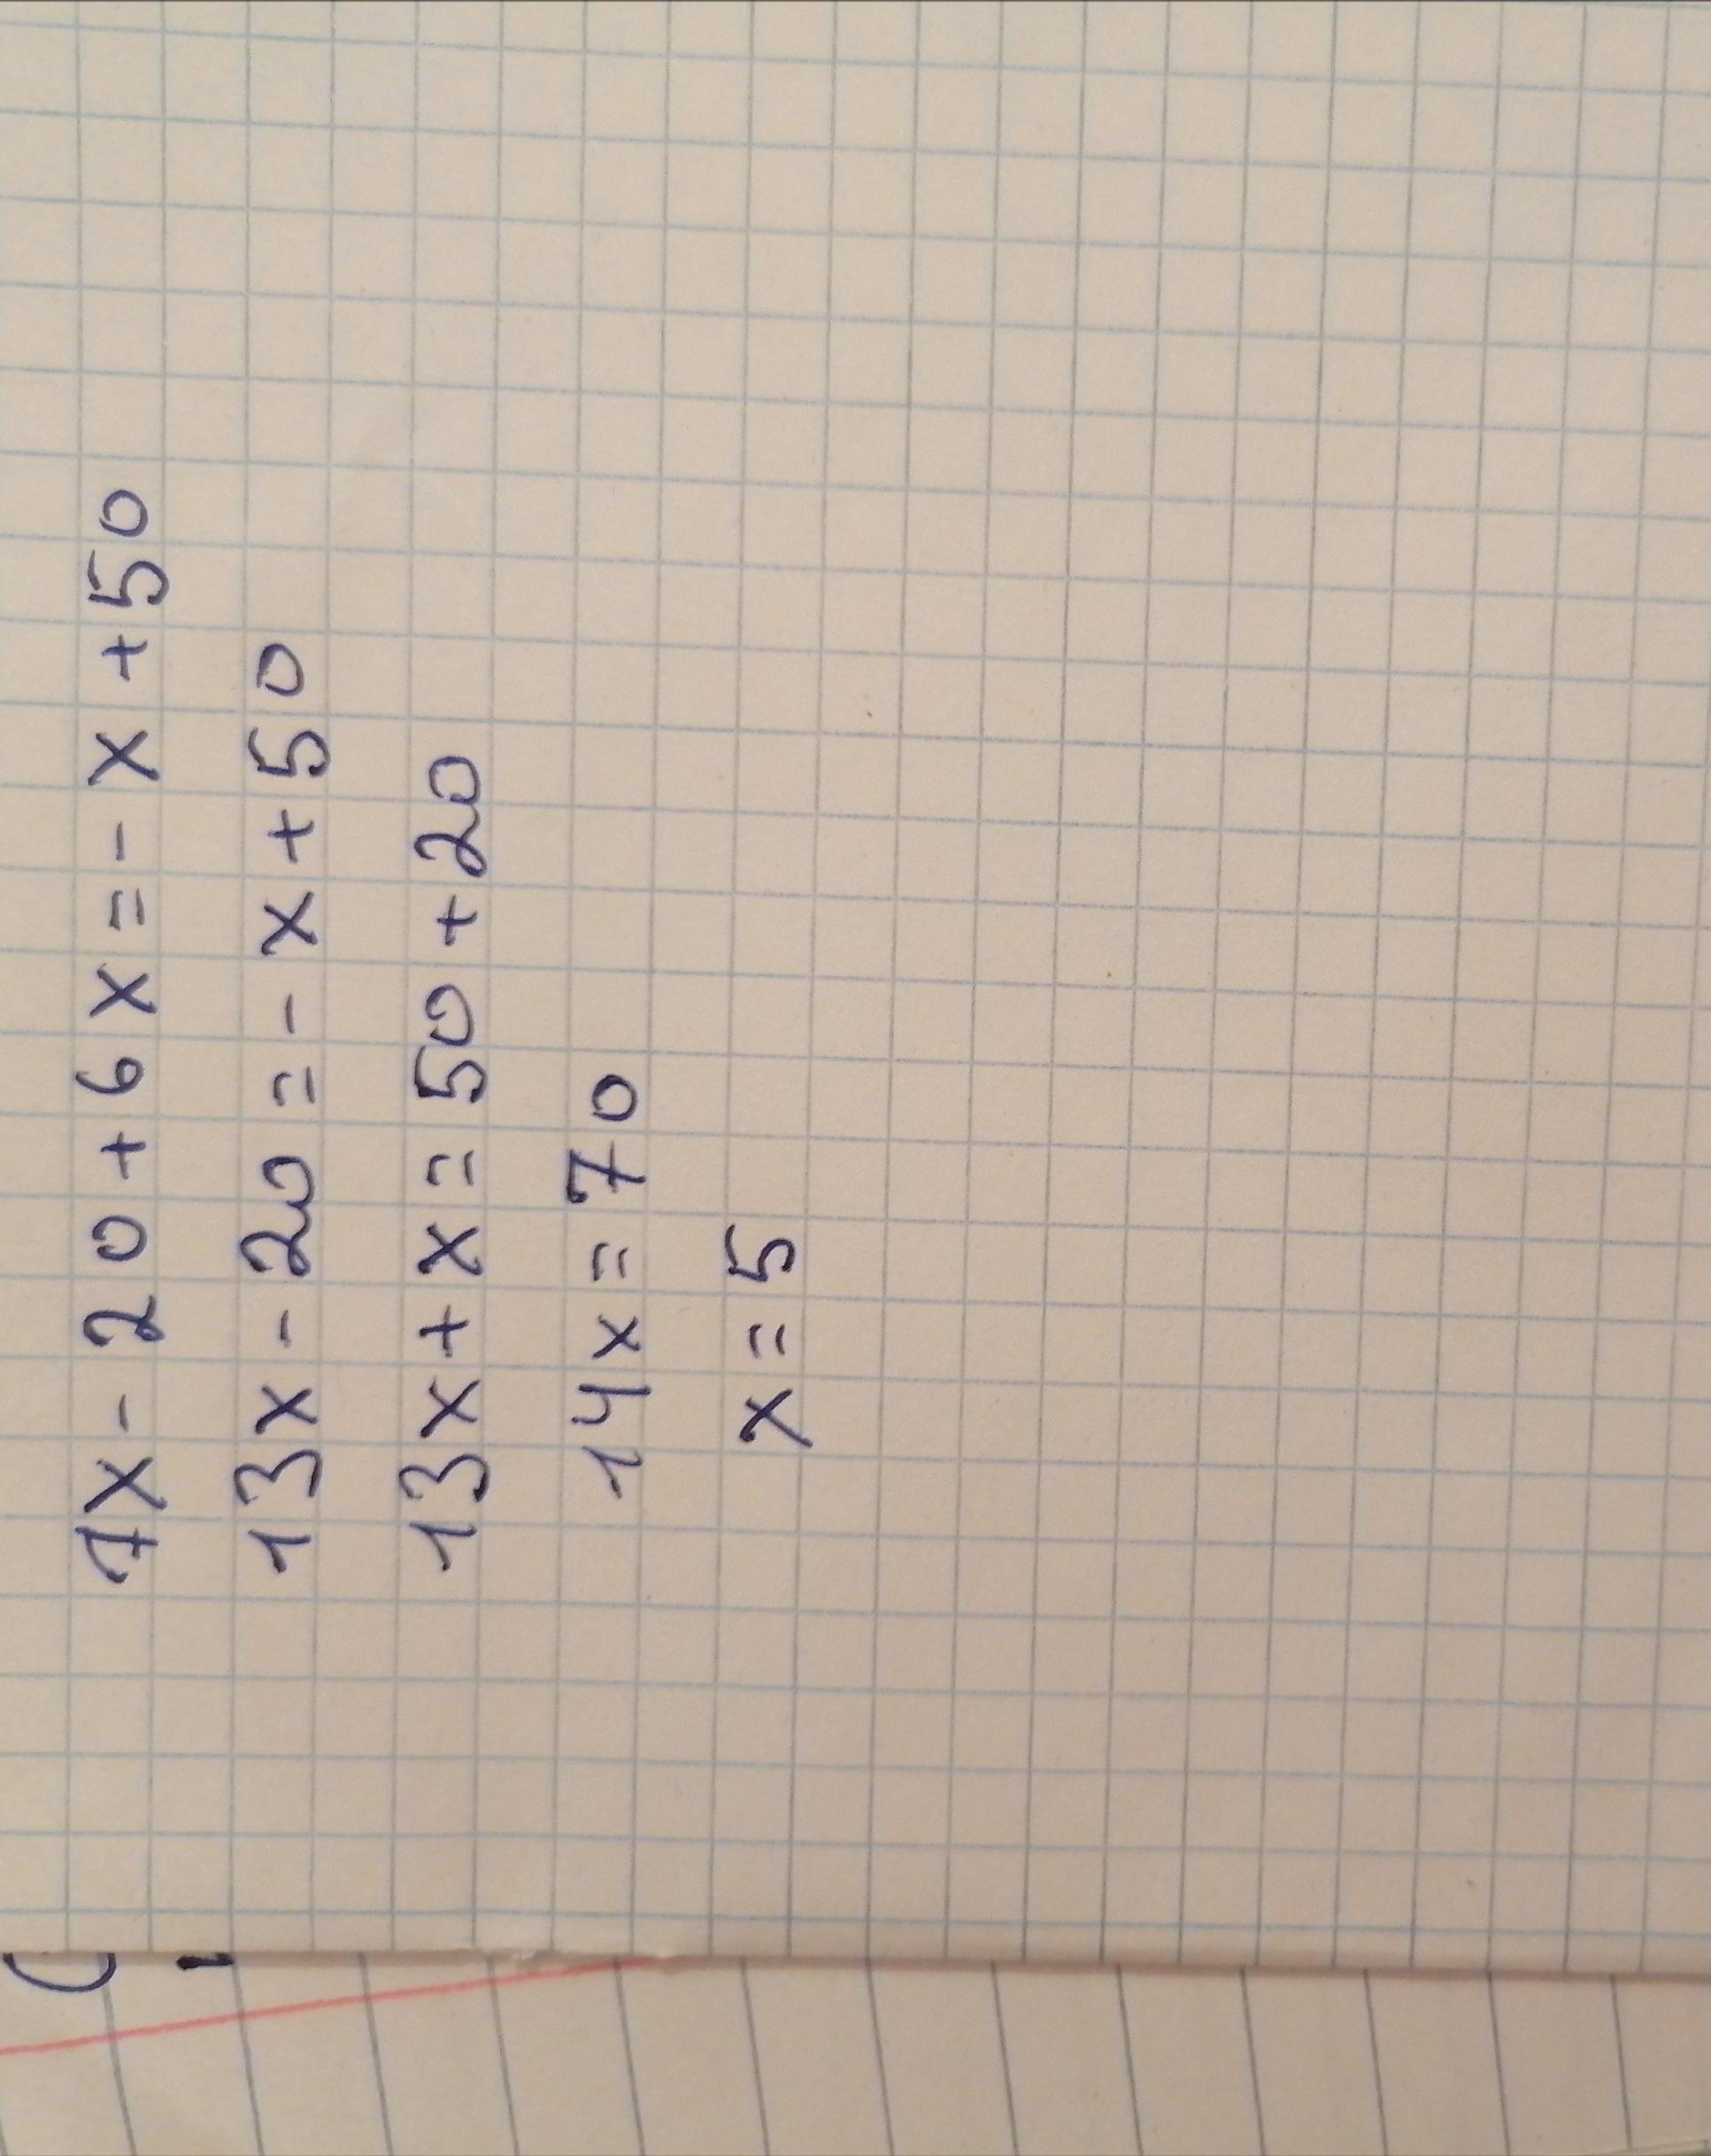 7x - 20 + 6x = - x + 50
13x - 20 = - x + 50
13x + x = 50 + 20
14x = 70
x = 5